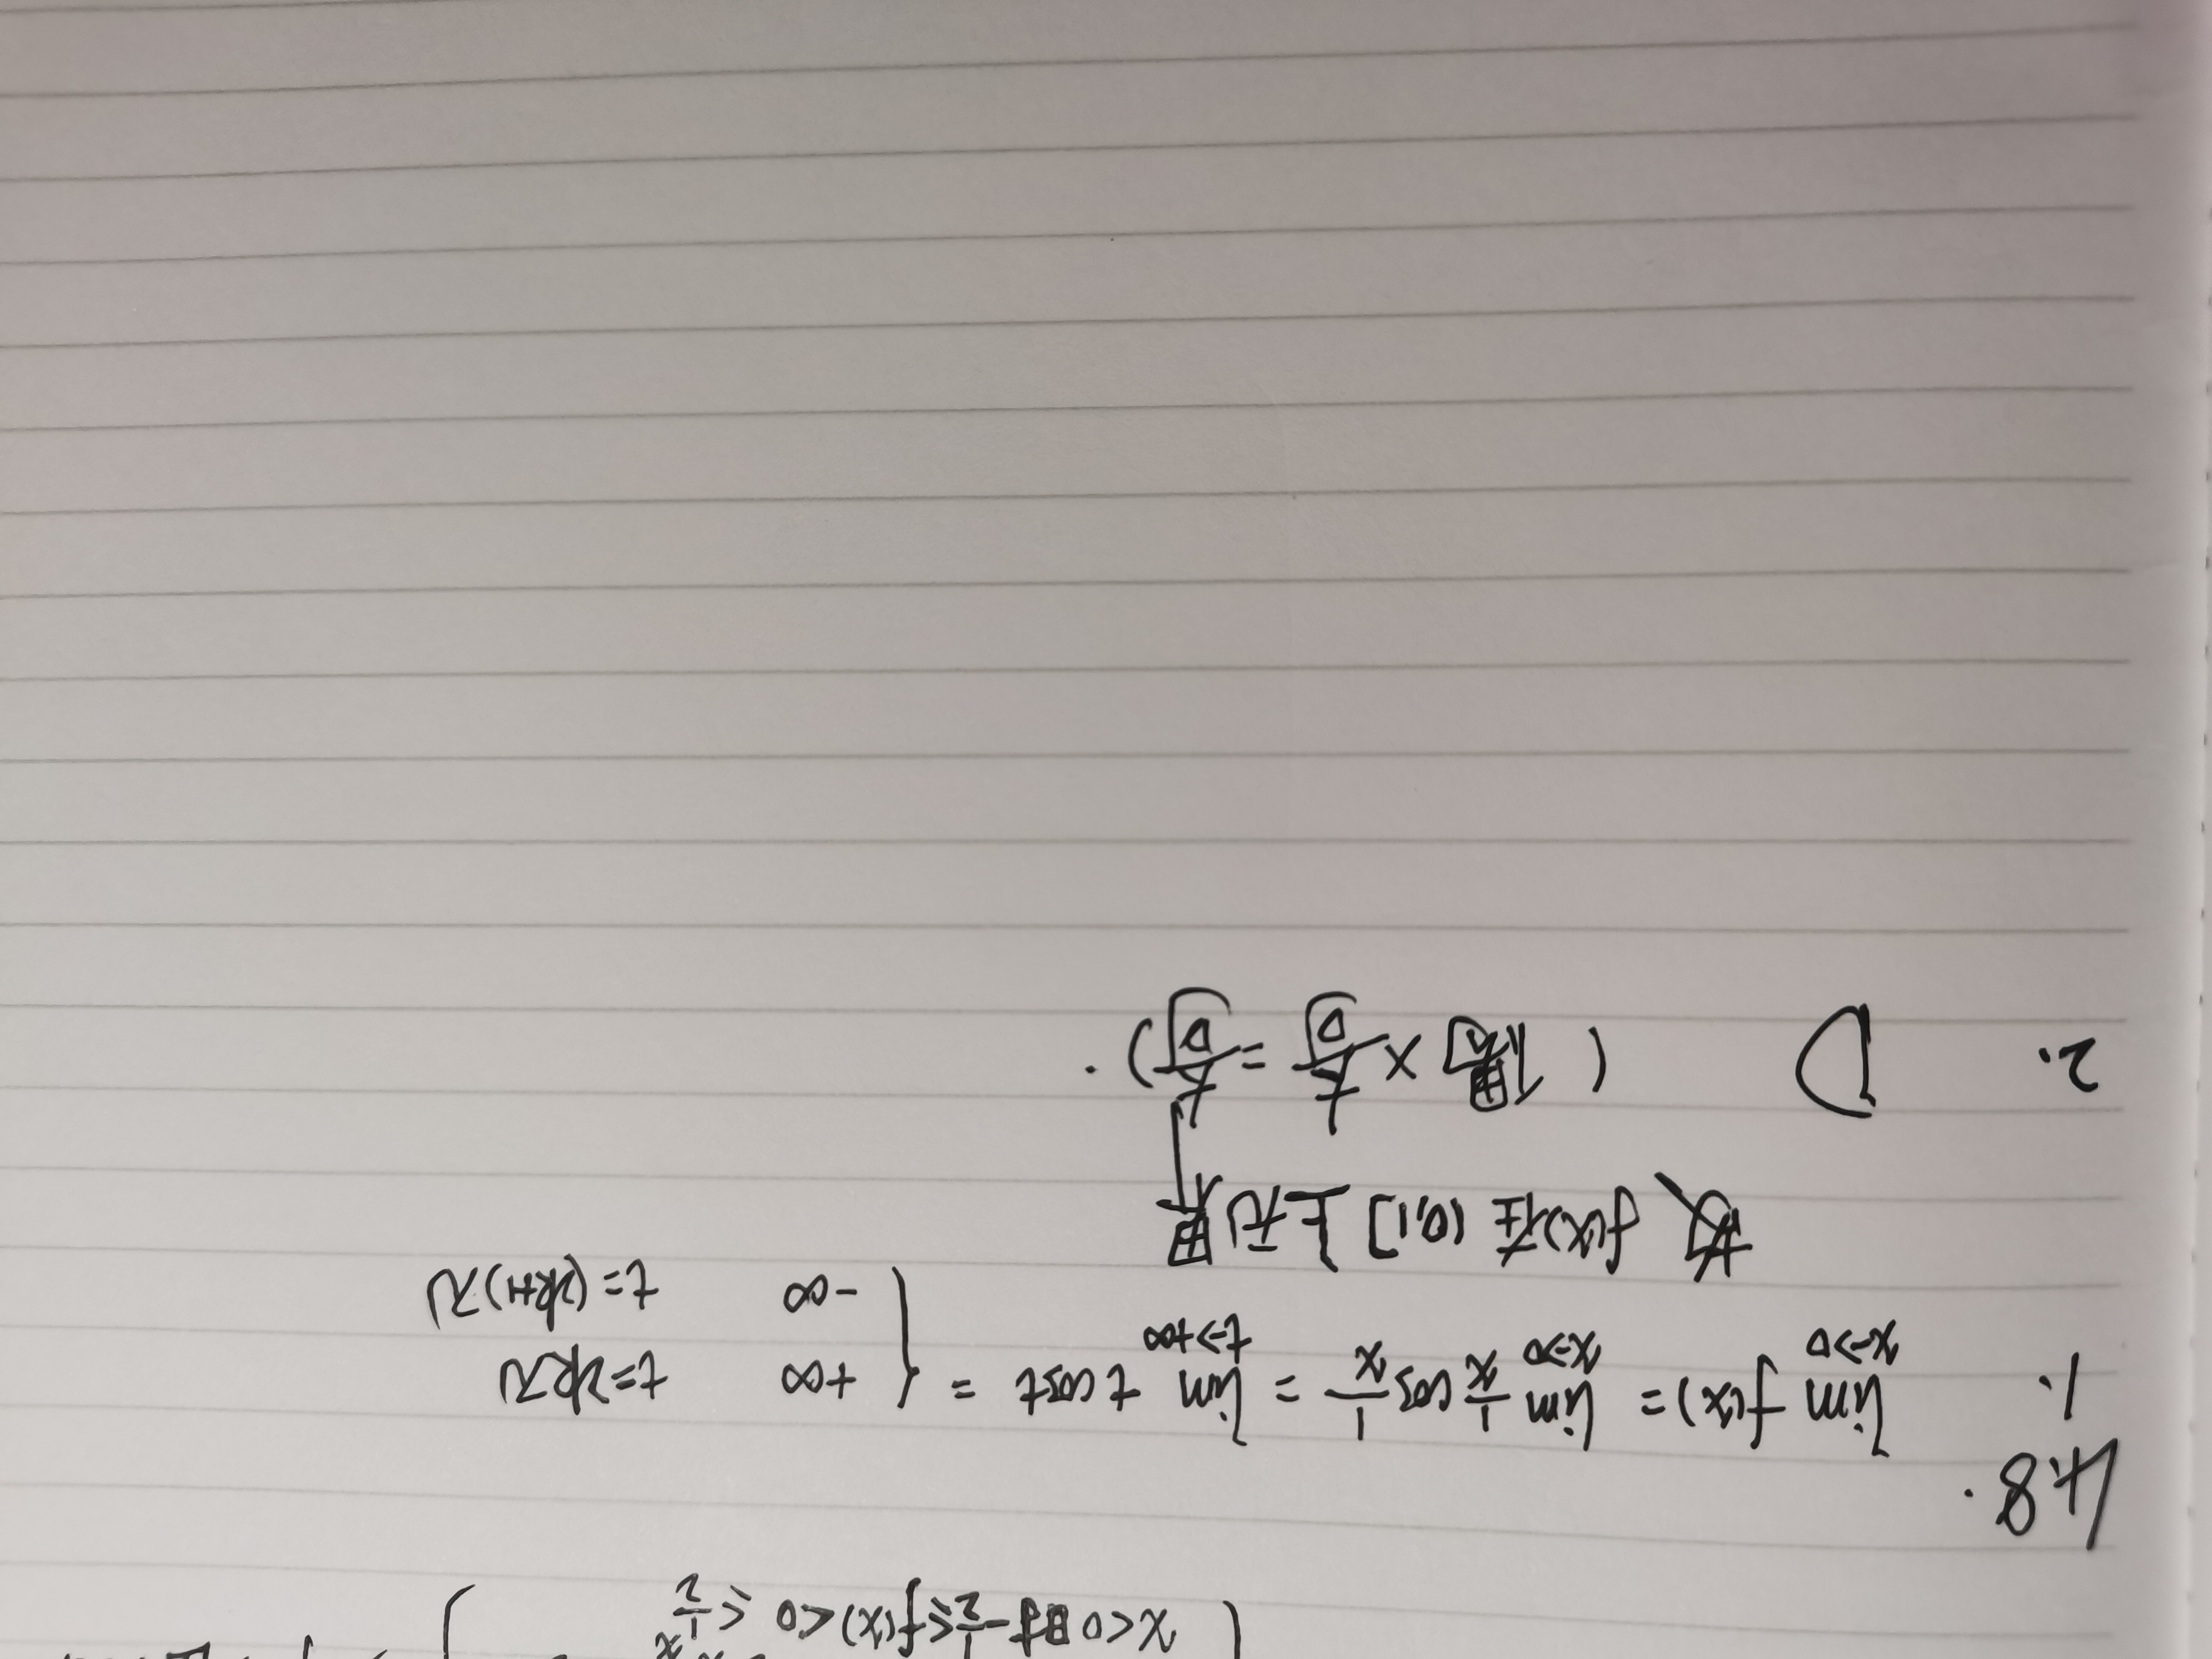 x<0时 -1/2 ≤ f(x)<0 ≤ 1/2
4.8.
1. lim x->0 f(x) = lim x->0 1/x cos 1/x = lim t->+∞ t cost = { +∞ t=2kπ
-∞ t=(2k+1)π
故 f(x)在 (0,1] 上无界
2. D